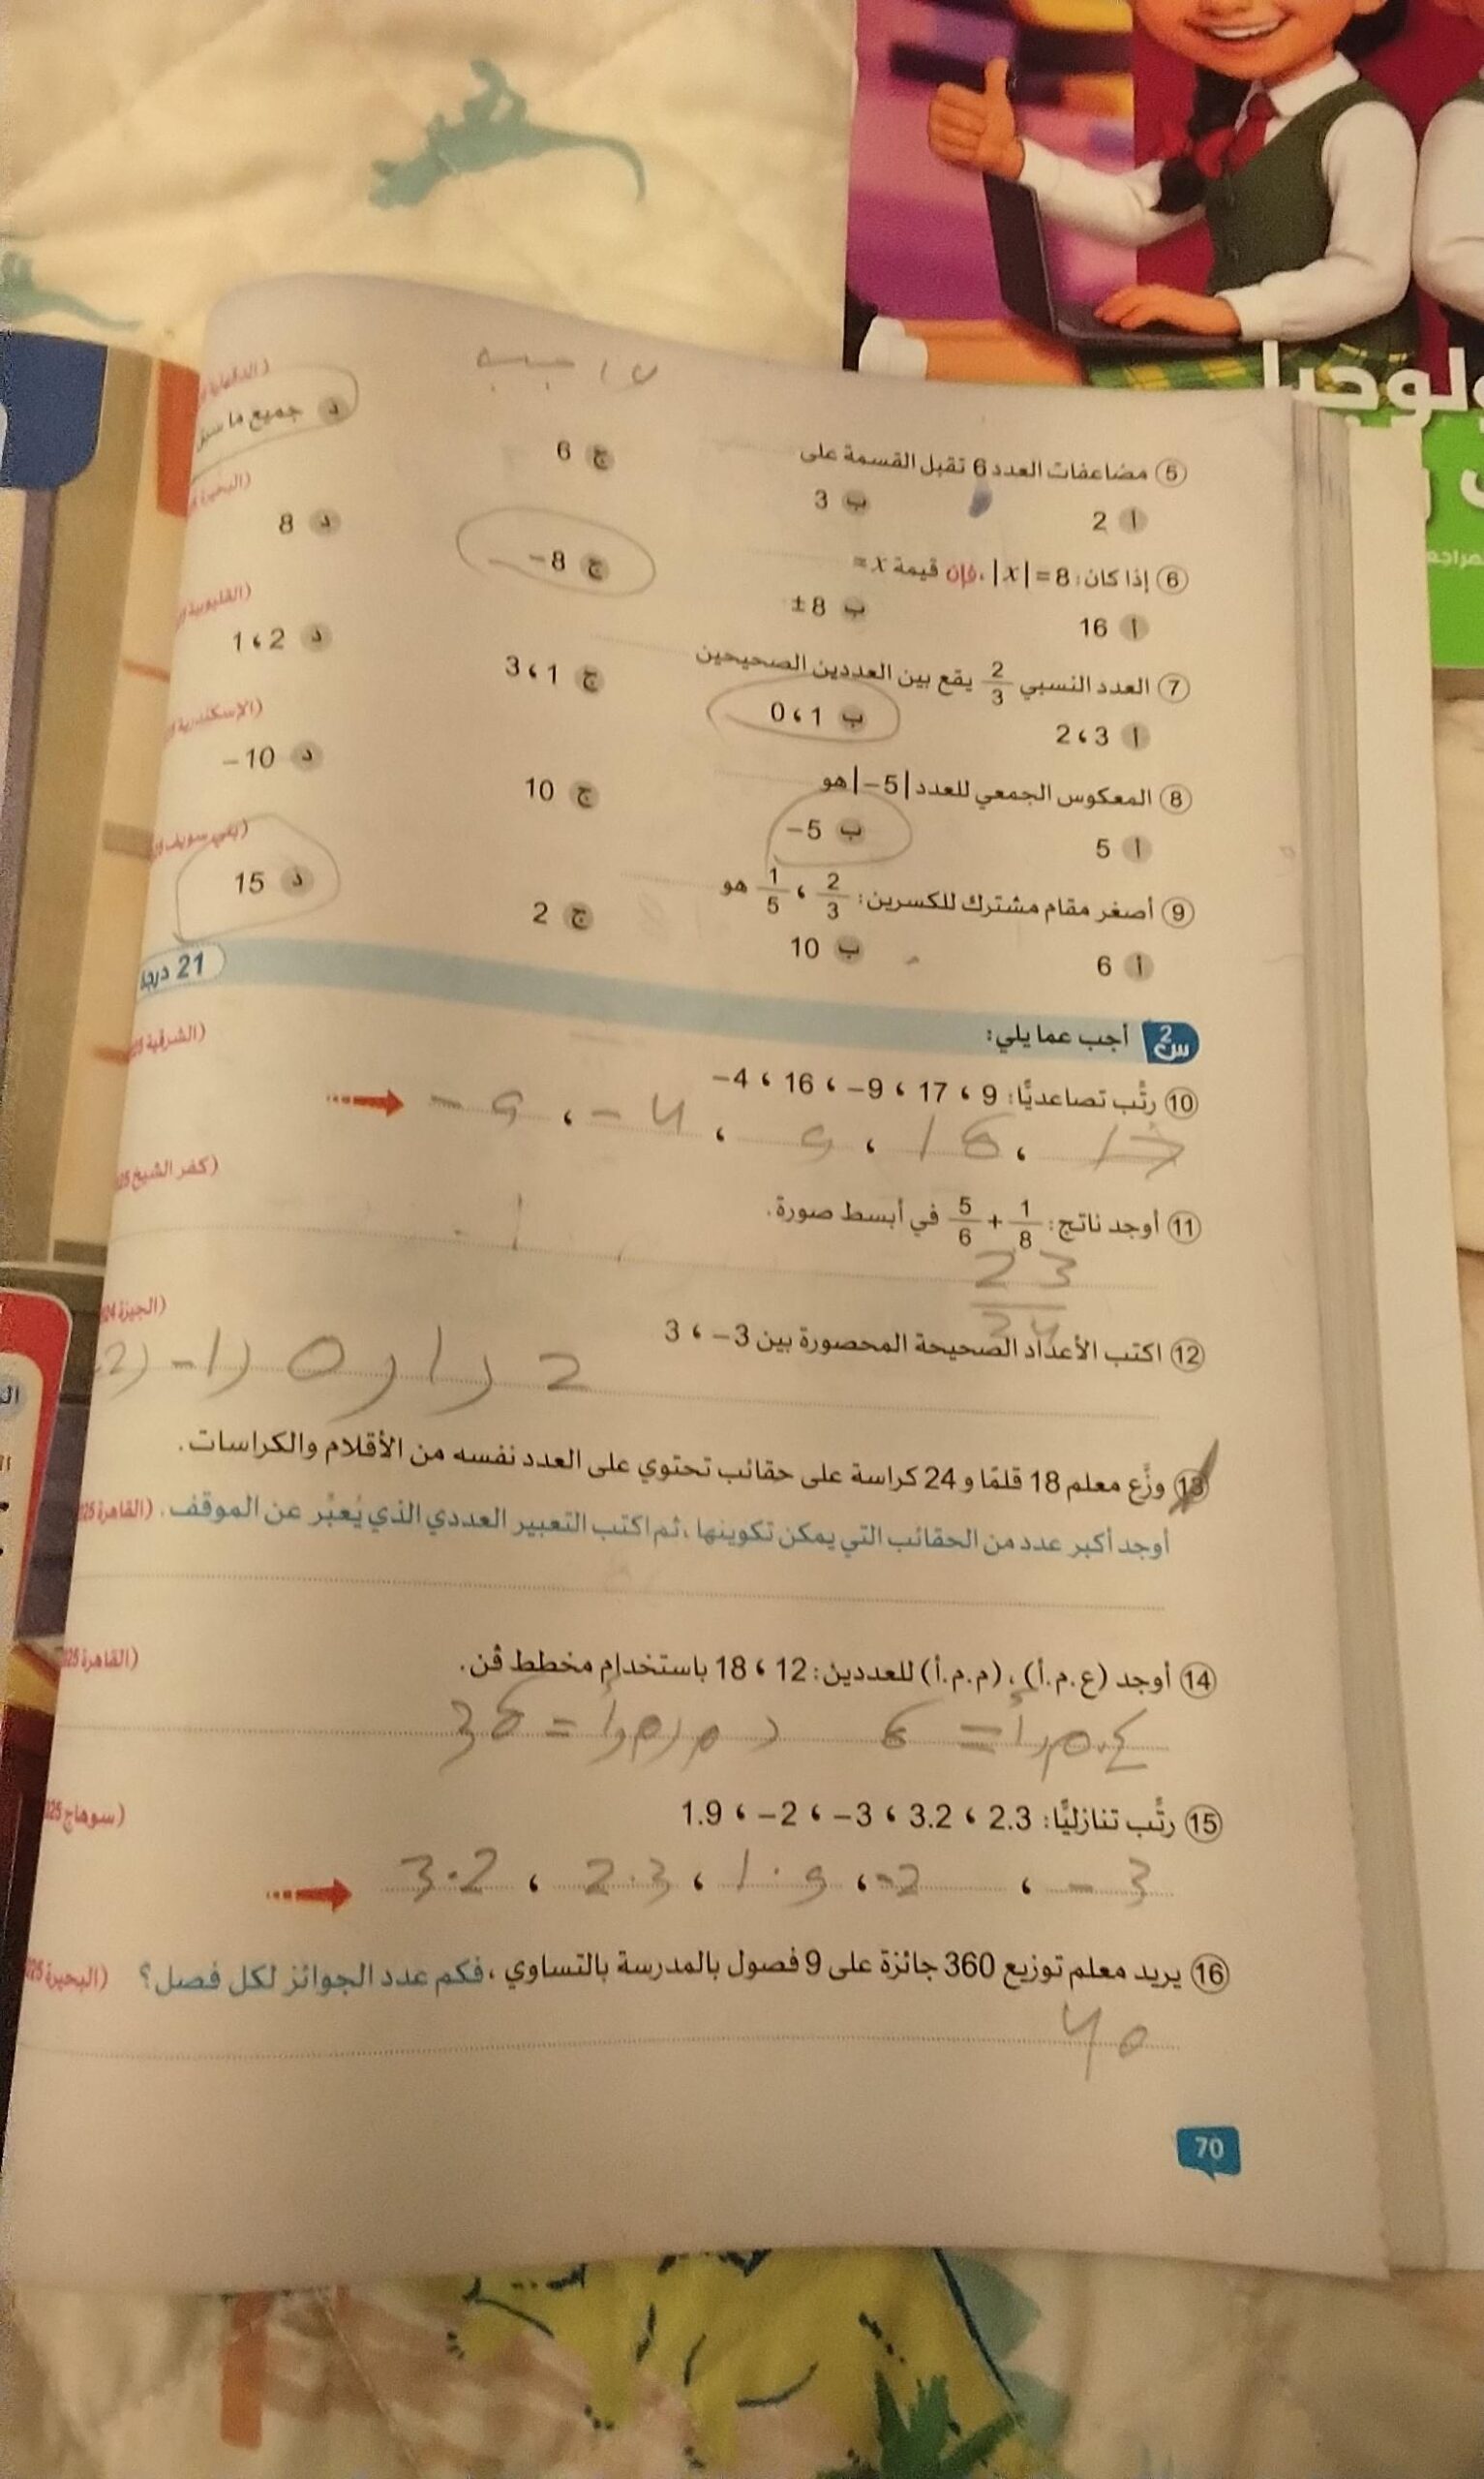 ⑤ مضاعفات العدد 6 تقبل القسمة على
أ 2 ب 3 ج 6 د جميع ما سبق
⑥ إذا كان: |x| = 8، فإن قيمة x =
أ 16 ب ±8 ج -8 د 8
⑦ العدد النسبي 2/3 يقع بين العددين الصحيحين
أ 2، 3 ب 0، 1 ج 3، 1 د 1، 2
⑧ المعكوس الجمعي للعدد |-5| هو
أ 5 ب -5 ج 10 د -10
⑨ أصغر مقام مشترك للكسرين: 2/3، 1/5 هو
أ 6 ب 10 ج 2 د 15
س2 أجب عما يلي: 21 درجة
⑩ رتِّب تصاعديًّا: 9، 17، -9، 16، -4 (الشرقية
-9، -4، 9، 16، 17
⑪ أوجد ناتج: 1/8 + 5/6 في أبسط صورة. (كفر الشيخ 25
23/24
⑫ اكتب الأعداد الصحيحة المحصورة بين -3، 3 (الجيزة 24
2) -1) 0) 1) 2
⑬ وزَّع معلم 18 قلمًا و 24 كراسة على حقائب تحتوي على العدد نفسه من الأقلام والكراسات.
أوجد أكبر عدد من الحقائب التي يمكن تكوينها، ثم اكتب التعبير العددي الذي يُعبِّر عن الموقف. (القاهرة 25
⑭ أوجد (ع.م.أ)، (م.م.أ) للعددين: 12، 18 باستخدام مخطط ڤن. (القاهرة 25
ع.م.أ = 6 ، م.م.أ = 36
⑮ رتِّب تنازليًّا: 2.3، 3.2، -3، -2، 1.9 (سوهاج 25
3.2، 2.3، 1.9، -2، -3
⑯ يريد معلم توزيع 360 جائزة على 9 فصول بالمدرسة بالتساوي، فكم عدد الجوائز لكل فصل؟ (البحيرة 25
40
70